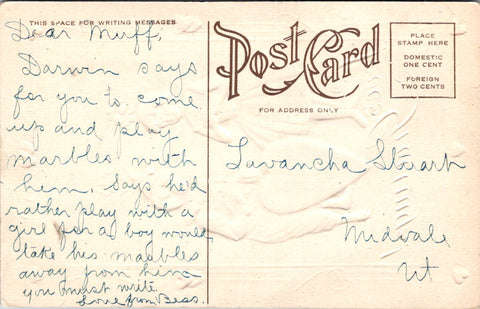 THIS SPACE FOR WRITING MESSAGES
Dear Muff;
Darwin says
for you to come
up and play
marbles with
him. Says he'd
rather play with a
girl for a boy would
take his marbles
away from him
you must write.
Love from Bess.
Post Card
FOR ADDRESS ONLY
PLACE
STAMP HERE
DOMESTIC
ONE CENT
FOREIGN
TWO CENTS
Lavancha Stuart
Midvale
Ut